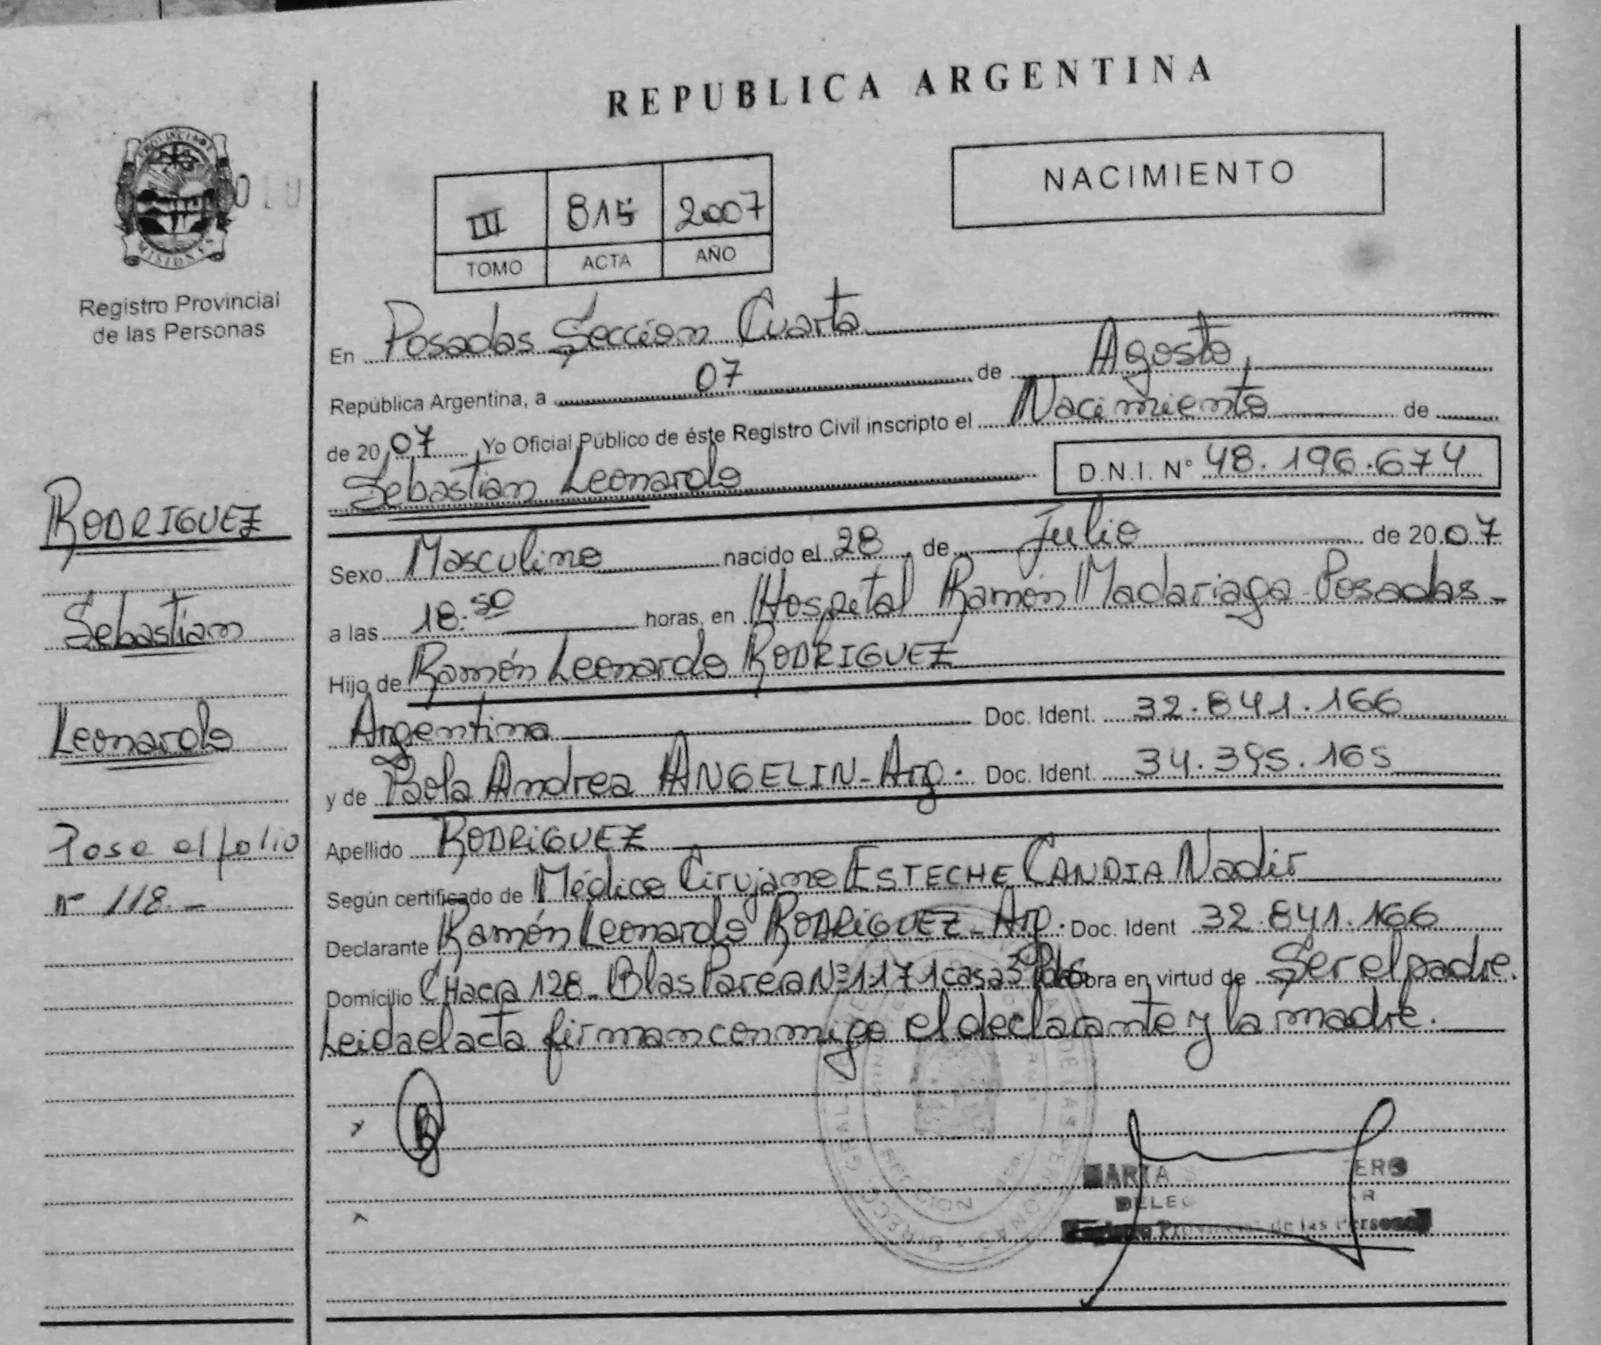 REPUBLICA ARGENTINA
NACIMIENTO
III 815 2007
TOMO ACTA AÑO
PROVINCIA DE
MISIONES
010
Registro Provincial
de las Personas
En Posadas Sección Cuarta
República Argentina, a 07 de Agosto
de 2007 Yo Oficial Público de éste Registro Civil inscripto el Nacimiento de
Sebastian Leonardo D.N.I. N° 48.196.674
RODRIGUEZ
Sebastian
Leonardo
Pose el folio
n° 118.-
Sexo Masculino nacido el 28 de Julio de 2007
a las 18:50 horas, en Hospital Ramón Madariaga-Posadas-
Hijo de Ramón Leonardo RODRIGUEZ
Argentina Doc. Ident. 32.841.166
y de Paola Andrea ANGELIN-Arg. Doc. Ident. 34.395.165
Apellido RODRIGUEZ
Según certificado de Médico Cirujano ESTECHE CANDIA Nadir
Declarante Ramón Leonardo RODRIGUEZ-Arg. Doc. Ident 32.841.166
Domicilio CHacra 128-Blas Parera N° 1171 casa 3 Pdas Obra en virtud de Ser el padre.
Leida el acta firman conmigo el declarante y la madre.
MARIA
DELEG
Provincial de las Personas